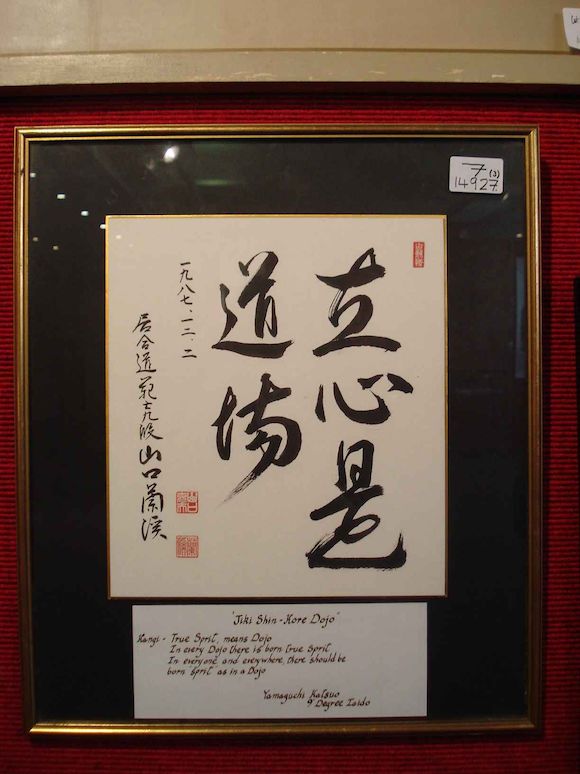 7 (3)
14927
直心是
道場
一九八七、一二、二
居合道範士九段 山口蘭溪
"Jiki Shin-Kore Dojo"
Kangi - True Sprit, means Dojo
In every Dojo there is born true Sprit
In everyone and everywhere, there should be
born "Sprit" as in a Dojo
Yamaguchi Katsuo
9° Degree Iaido